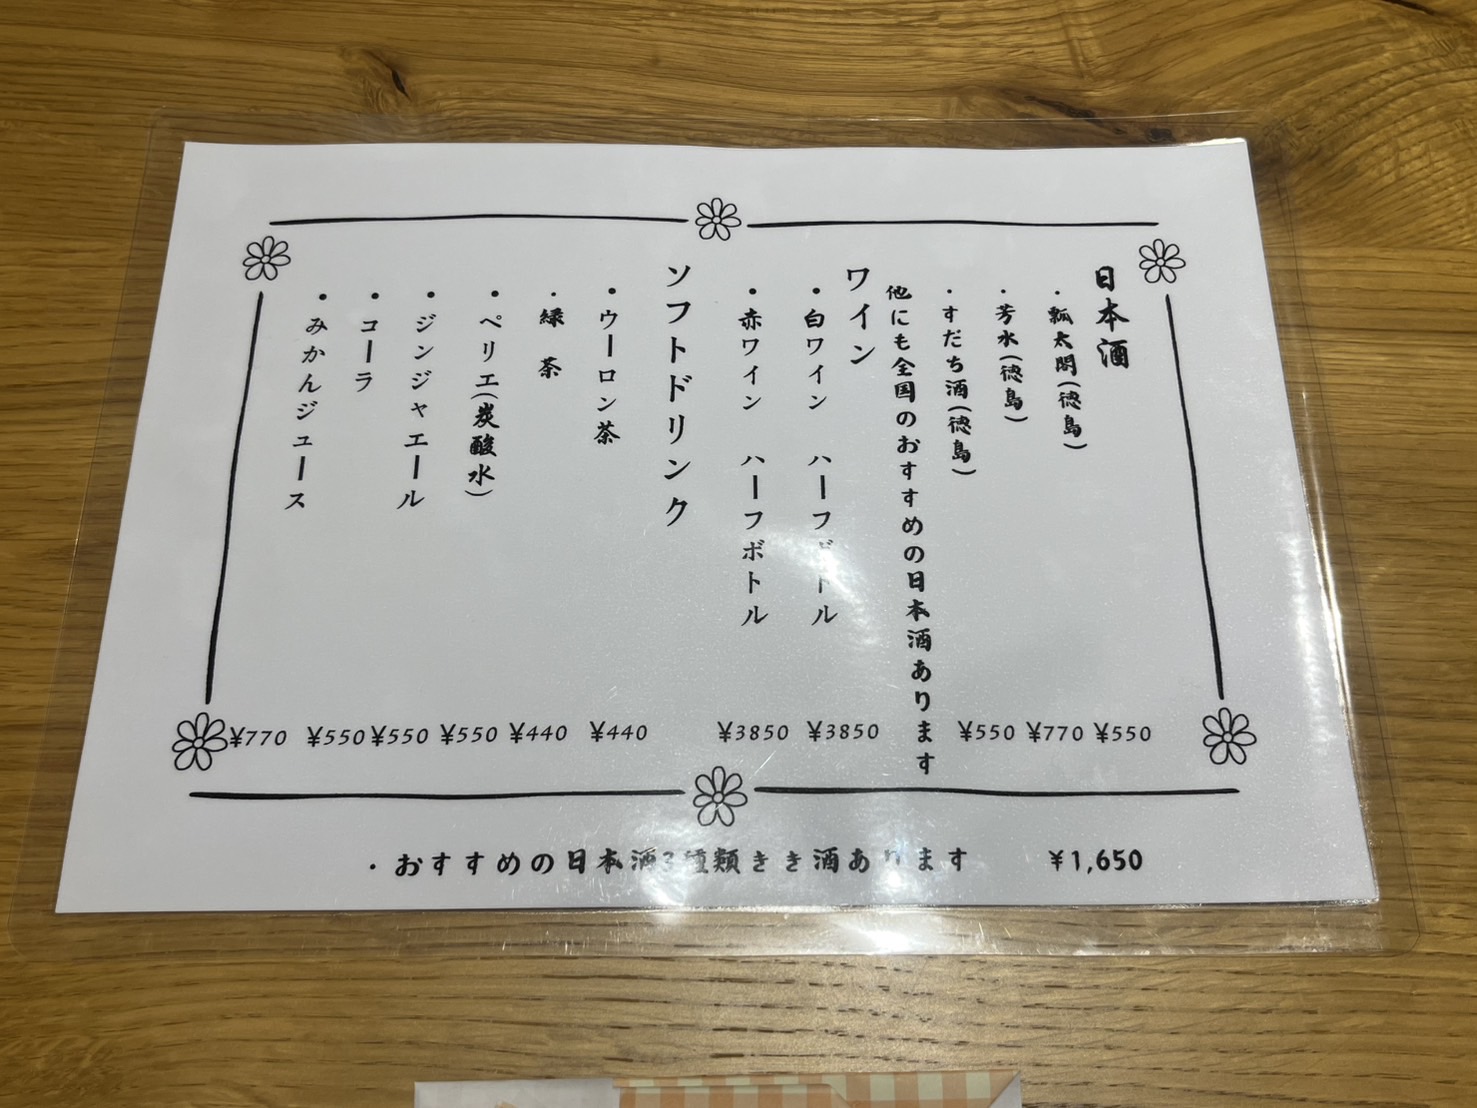 日本酒
・瓢太閤(徳島) ¥550
・芳水(徳島) ¥770
・すだち酒(徳島) ¥550
他にも全国のおすすめの日本酒あります
ワイン
・白ワイン ハーフボトル ¥3850
・赤ワイン ハーフボトル ¥3850
ソフトドリンク
・ウーロン茶 ¥440
・緑茶 ¥440
・ペリエ(炭酸水) ¥550
・ジンジャエール ¥550
・コーラ ¥550
・みかんジュース ¥770
・おすすめの日本酒3種類きき酒あります ¥1,650